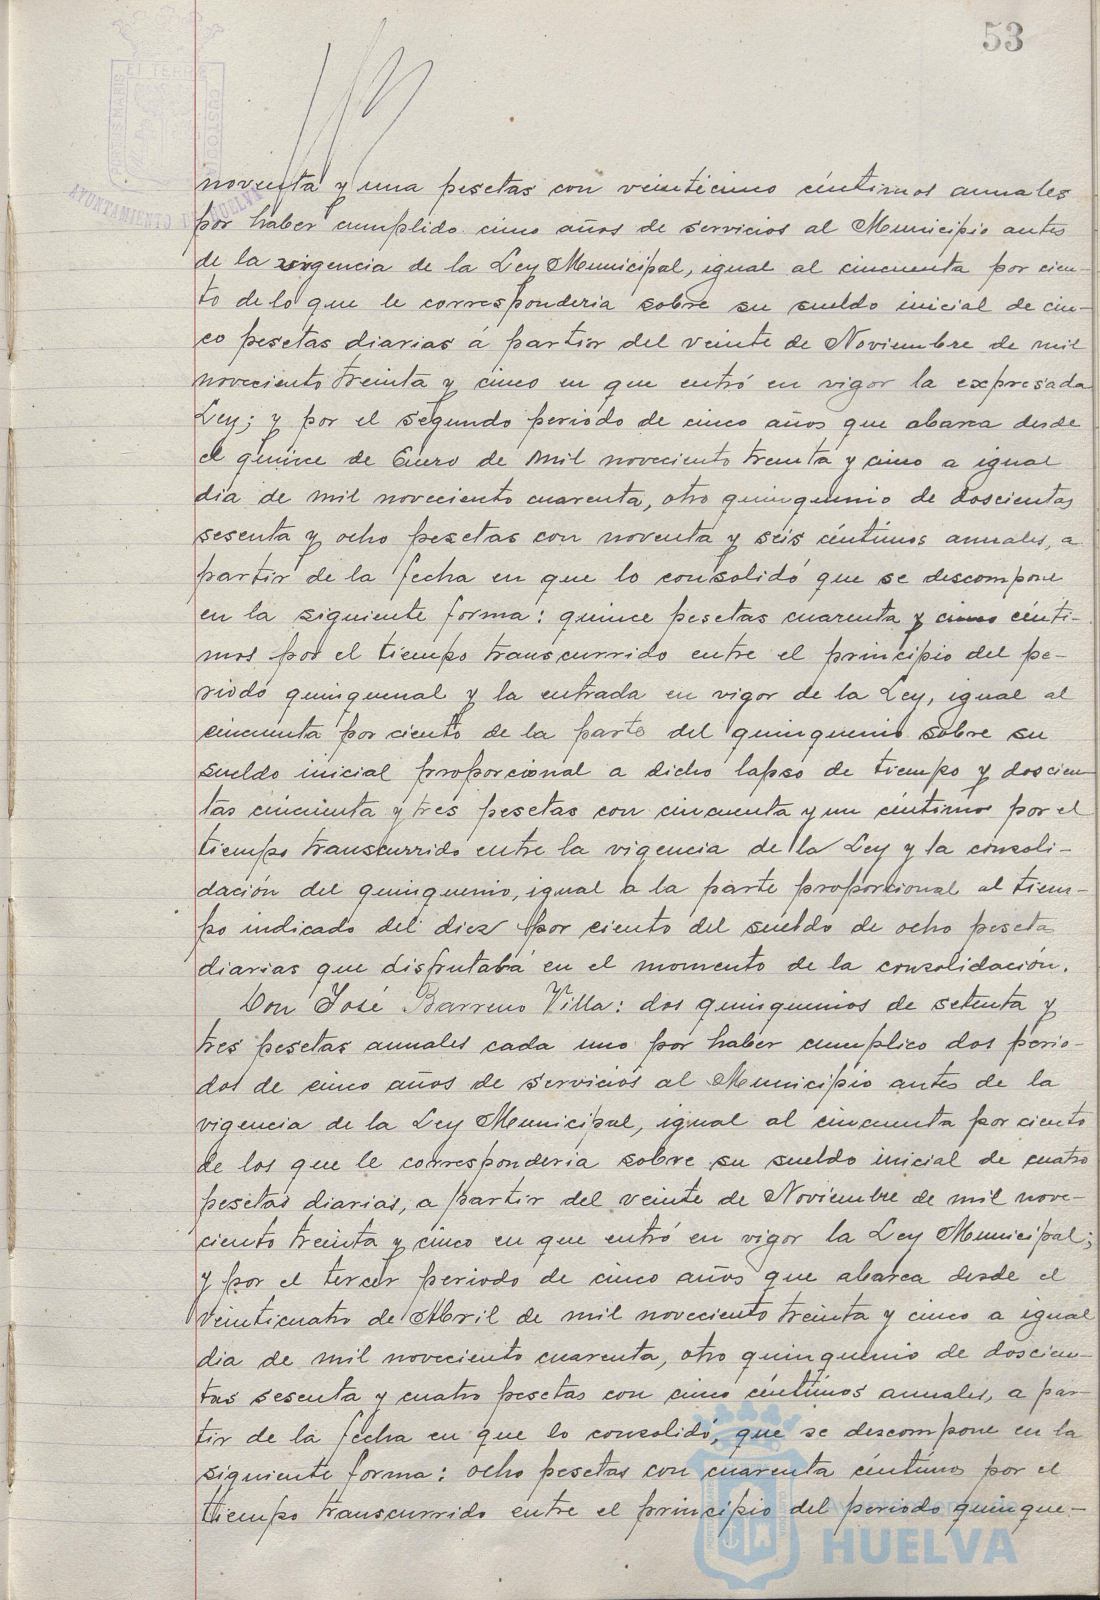 53
ET TERRE
PORTUS MARIS
CUSTODIA
AYUNTAMIENTO DE HUELVA
noventa y una pesetas con veinticinco céntimos anuales
por haber cumplido cinco años de servicios al Municipio antes
de la vigencia de la Ley Municipal, igual al cincuenta por cien-
to de lo que le corresponderia sobre su sueldo inicial de cin-
co pesetas diarias á partir del veinte de Noviembre de mil
noveciento treinta y cinco en que entró en vigor la expresada
Ley; y por el segundo periodo de cinco años que abarca desde
el quince de Enero de mil noveciento treinta y cinco a igual
dia de mil noveciento cuarenta, otro quinquenio de doscientas
sesenta y ocho pesetas con noventa y seis céntimos anuales, a
partir de la fecha en que lo consolidó que se descompone
en la siguiente forma: quince pesetas cuarenta y cinco cénti-
mos por el tiempo transcurrido entre el principio del pe-
riodo quinquenal y la entrada en vigor de la Ley, igual al
cincuenta por ciento de la parte del quinquenio sobre su
sueldo inicial proporcional a dicho lapso de tiempo y doscien-
tas cincuenta y tres pesetas con cincuenta y un céntimo por el
tiempo transcurrido entre la vigencia de la Ley y la consoli-
dación del quinquenio, igual a la parte proporcional al tiem-
po indicado del diez por ciento del sueldo de ocho peseta
diarias que disfrutaba en el momento de la consolidación.
Don José Barreno Villa: dos quinquenios de setenta y
tres pesetas anuales cada uno por haber cumplico dos perio-
dos de cinco años de servicios al Municipio antes de la
vigencia de la Ley Municipal, igual al cincuenta por ciento
de los que le corresponderia sobre su sueldo inicial de cuatro
pesetas diarias, a partir del veinte de Noviembre de mil nove-
ciento treinta y cinco en que entró en vigor la Ley Municipal;
y por el tercer periodo de cinco años que abarca desde el
veinticuatro de Abril de mil noveciento treinta y cinco a igual
dia de mil noveciento cuarenta, otro quinquenio de doscien-
tas sesenta y cuatro pesetas con cinco céntimos anuales, a par-
tir de la fecha en que lo consolidó, que se descompone en la
siguiente forma: ocho pesetas con cuarenta céntimos por el
tiempo transcurrido entre el principio del periodo quinque-
HUELVA